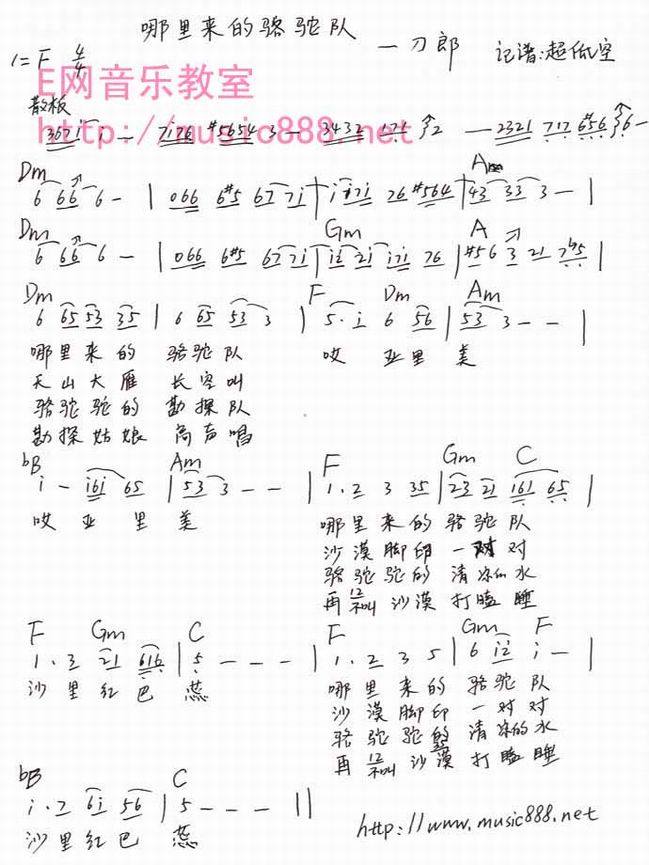 哪里来的骆驼队
一刀郎 记谱:超低空
1=F 4/4
E网音乐教室
散板
http://music888.net
Dm Am
6 66 6 - | 066 6#5 67 71 |
Dm Gm A
6 66 6 - | 066 6#5 67 71 |
Dm F Dm Am
6 65 53 35 | 6 65 53 3 | 5· i 6 56 | 53 3 - - |
哪里来的 骆驼队 哎 亚里美
天山大雁 长空叫
骆驼驼的 勘探队
勘探姑娘 高声唱
bB Am F Gm C
i - i6i 65 | 53 3 - - | 1·2 3 35 | 23 21 161 65 |
哎 亚里美 哪里来的骆驼队
沙漠脚印一对对
骆驼驼的清凉的水
再不叫沙漠打瞌睡
F Gm C F Gm F
1·3 21 616 | 5 - - - | 1·2 3 5 | 6 i2 i - |
沙里红巴 蕊 哪里来的 骆驼队
沙漠脚印 一对对
骆驼驼的 清凉的水
再不叫沙漠打瞌睡
bB C
i·2 6i 56 | 5 - - - ||
沙里红巴 蕊
http://www.music888.net